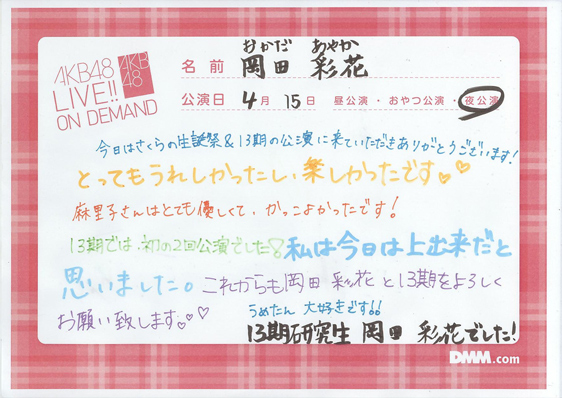 AKB48
LIVE!!
ON DEMAND
AKB
48
おかだ あやか
名前 岡田 彩花
公演日 4月 15日 ・ 昼公演 ・ おやつ公演 ・ 夜公演
今日はさくらの生誕祭&13期の公演に来ていただきありがとうございます!
とってもうれしかったし、楽しかったです
麻里子さんはとても優しくて、かっこよかったです!
13期では、初の2回公演でした! 私は今日は上出来だと
思いました。これからも岡田 彩花と13期をよろしく
お願い致します。
うめたん 大好きです!!
13期研究生 岡田 彩花でした!
DMM.com